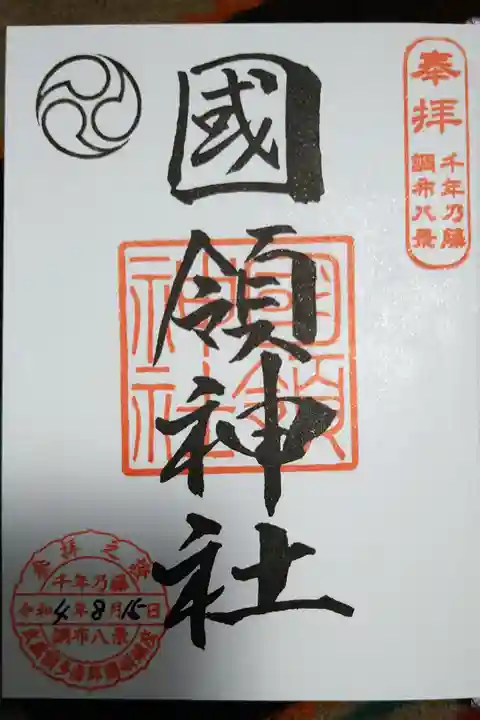 奉拝
千年乃藤
調布八景
國領神社
國領神社
奉拝之證
千年乃藤
令和4年8月15日
調布八景